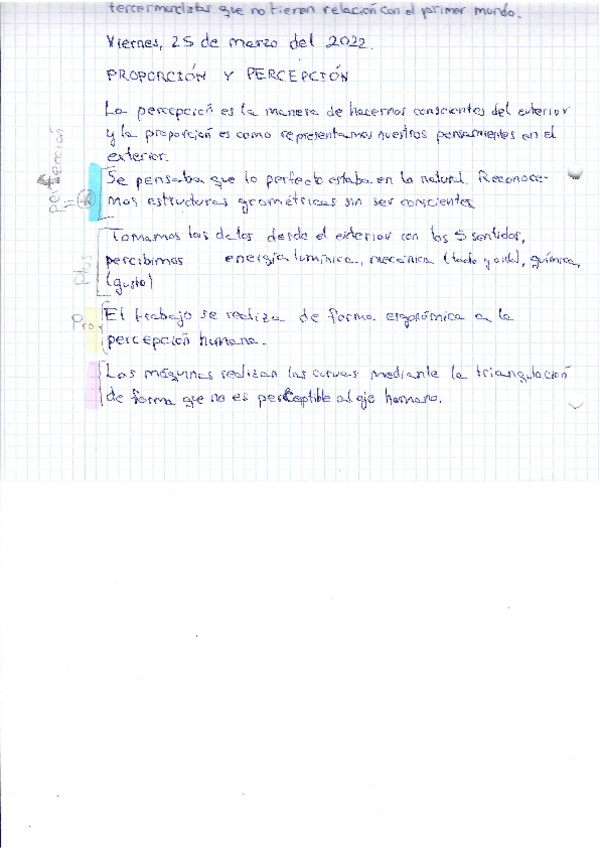 tercermundistas que no tienen relación con el primer mundo.
Viernes, 25 de marzo del 2022.
PROPORCIÓN Y PERCEPCIÓN
La percepción es la manera de hacernos conscientes del exterior
y la proporción es como representamos nuestros pensamientos en el
exterior.
perfección
Se pensaba que lo perfecto estaba en lo natural. Reconoce-
mos estructuras geométricas sin ser conscientes
Plus
Tomamos los datos desde el exterior con los 5 sentidos,
percibimos energía lumínica, mecánica (tacto y oído), química,
(gusto)
Pro,
El trabajo se realiza de forma ergonómica a la
percepción humana.
Las máquinas realizan las curvas mediante la triangulación
de forma que no es perceptible al ojo humano.